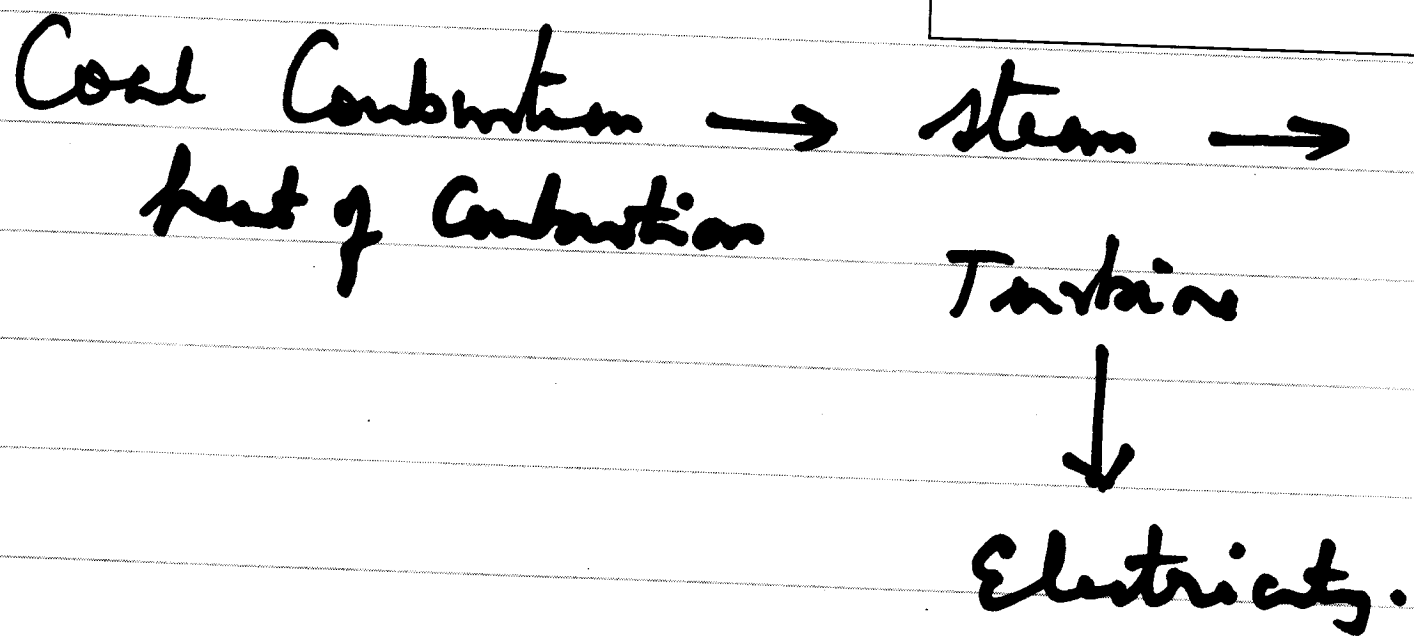 Coal Combustion → steam →
heat of Combustion
Turbine
↓
Electricity.